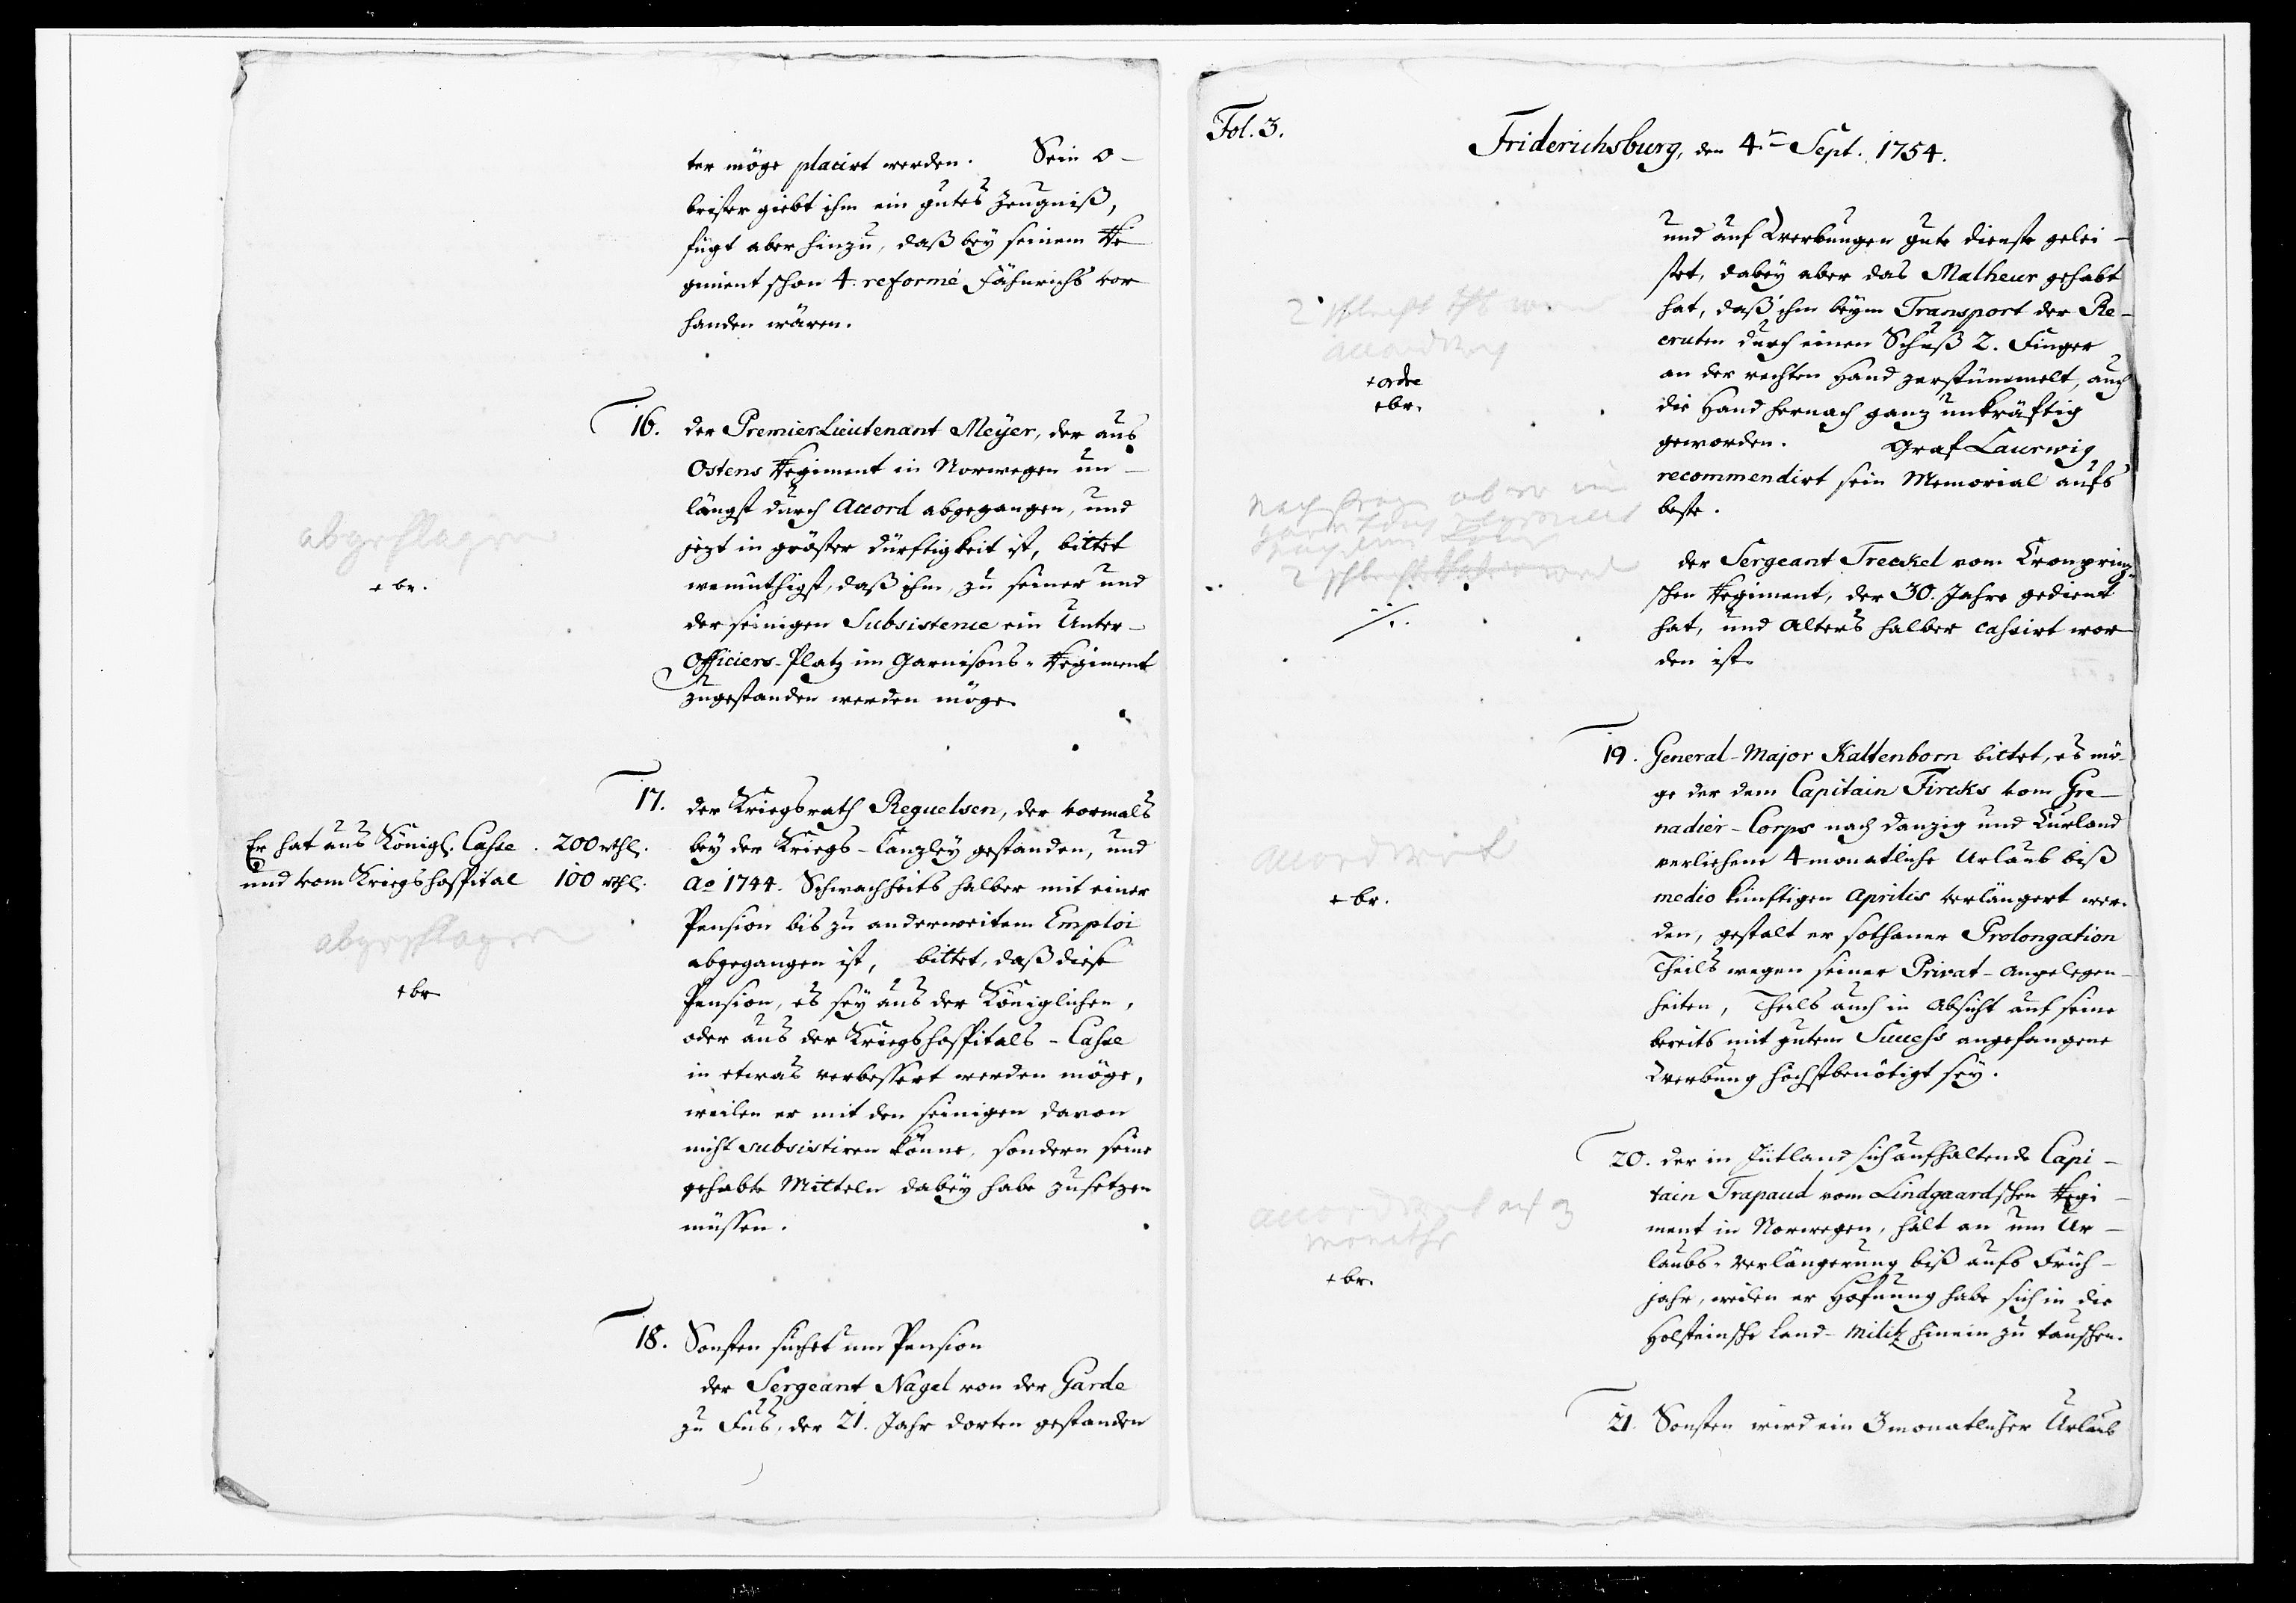 ter möge placirt werden. Sein O-
brister giebt ihm ein gutes Zeugniß,
fügt aber hinzu, daß bey seinem Re
giment schon 4. reformé Fähnrichs vor
handen wären.
16. der Premier Lieutenant Meyer, der aus
Ostens Regiment in Norwegen un-
längst durch Accord abgegangen, und
jezt in gröster Dürftigkeit ist, bittet
wemüthigst, daß ihm, zu seiner und
der seinigen Subsistence ein Unter-
Officiers-Platz im Garnisons-Regiment
zugestanden werden möge.
abgeschlagen
+ br.
17. der Kriegsrath Reguelsen, der vormals
bey der Kriegs-Canzley gestanden, und
Ao 1744. Schwachheits halber mit einer
Pension bis zu anderweitem Emploi
abgegangen ist, bittet, daß diese
Pension, es sey aus der Königlichen,
oder aus der Kriegshospitals-Casse
in etwas verbessert werden möge,
weilen er mit den seinigen davon
nicht subsistiren könne, sondern seine
gehabte Mitteln dabey habe zusetzen
müssen.
Er hat aus Königl. Casse. 200 rthl.
und vom Kriegshospital 100 rthl.
abgeschlagen
+ br
18. Sonsten suchet um Pension
der Sergeant Nagel von der Garde
zu Fus, der 21. Jahr dorten gestanden
Fol. 3.
Friderichsburg, den 4.ten Sept. 1754.
und auf Werbungen gute Dienste gelei-
stet, dabey aber das Malheur gehabt
hat, daß ihm beym Transport der Re-
cruten durch einen Schuß 2. Finger
an der rechten Hand zerstümmelt, auch
die Hand hernach ganz unkräftig
geworden. Graf Laurwig
recommendirt sein Memorial aufs
beste.
+ ordre
+ br.
der Sergeant Treckel vom Cronprinz-
schen Regiment, der 30. Jahre gedient
hat, und Alters halber cassirt wor
den ist.
./.
19. General-Major Kaltenborn bittet, es mö-
ge der dem Capitain Fircks vom Gre-
nadier-Corps nach Danzig und Curland
verliehene 4 monatliche Urlaub biß
medio künftigen Aprilis verlängert wer-
den, gestalt er sothaner Prolongation
Theils wegen seiner Privat-Angelegen-
heiten, Theils auch in Absicht auf seine
bereits mit gutem Success angefangene
Werbung höchstbenötigt sey.
accordirt
+ br.
20. der in Jütland sich aufhaltende Capi-
tain Trapaud vom Lindgaardschen Regi-
ment in Norwegen, hält an um Ur-
laubs-Verlängerung biß aufs Früh-
jahr, weilen er Hofnung habe sich in die
Holsteinsche Land-Militz hinein zu tauschen.
accordirt auf 3
monathe
+ br.
21. Sonsten wird ein 3 monatlicher Urlaub